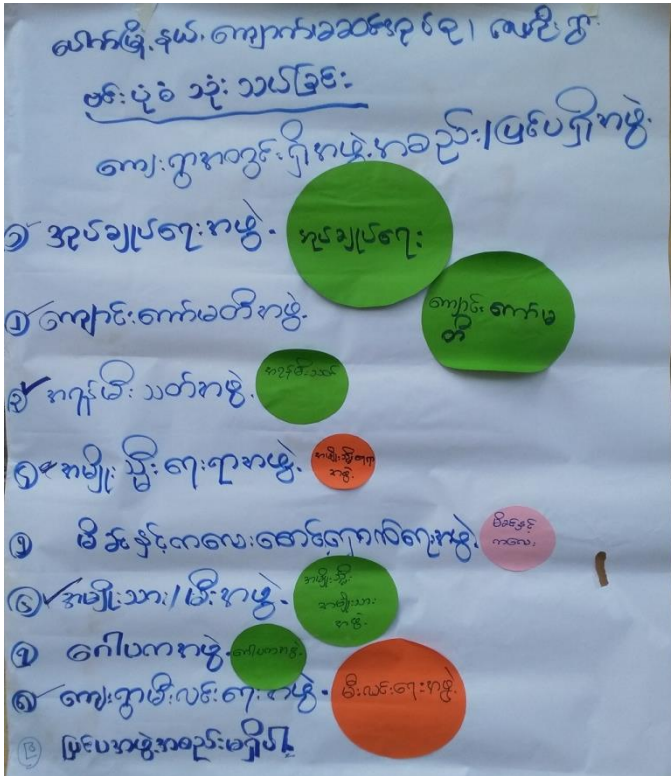 ပေါက်မြို့နယ်၊ ကျောက်ခဲဆင်းအုပ်စု၊ လေးဦးရွာ
ဗင်းပုံစံ သုံးသပ်ခြင်း
ကျေးရွာအတွင်းရှိအဖွဲ့အစည်း/ပြင်ပရှိအဖွဲ့
၁ အုပ်ချုပ်ရေးအဖွဲ့
အုပ်ချုပ်ရေး
၂ ကျောင်းကော်မတီအဖွဲ့
ကျောင်းကော်မ
တီ
၃ အရန်မီးသတ်အဖွဲ့
အရန်မီးသတ်
၄ အမျိုးသ္မီးရေးရာအဖွဲ့
အမျိုးသ္မီးရေးရာ
အဖွဲ့
၅ မိခင်နှင့်ကလေးစောင့်ရှောက်ရေးအဖွဲ့
မိခင်နှင့်
ကလေး
၆ အမျိုးသား/မီးအဖွဲ့
အမျိုးသ္မီး
အမျိုးသား
အဖွဲ့
၇ ဂေါပကအဖွဲ့
ဂေါပကအဖွဲ့
၈ ကျေးရွာမီးလင်းရေးအဖွဲ့
မီးလင်းရေးအဖွဲ့
ပြင်ပအဖွဲ့အစည်းမရှိပါ